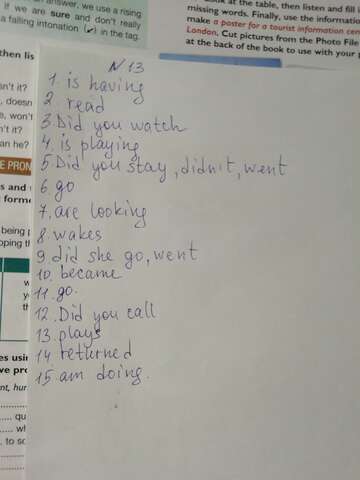 answer, we use a rising
if we are sure and don't really
a falling intonation (↙) in the tag.
at the table, then listen and fill i
missing words. Finally, use the informati
make a poster for a tourist information cen
London. Cut pictures from the Photo File
at the back of the book to use with your
then lis
sn't it?
, doesn
e, won't
n't it?
an he?
E PRON
s and
forme
being
oping t
w
yo
th
es usin
ve pro
ent, hur
qu
wh
, to sc
N 13
1. is having
2. read
3. Did you watch
4. is playing
5. Did you stay, didn't, went
6. go
7. are looking
8. wakes
9. did she go, went
10. became
11. go.
12. Did you call
13. plays
14. returned
15. am doing.